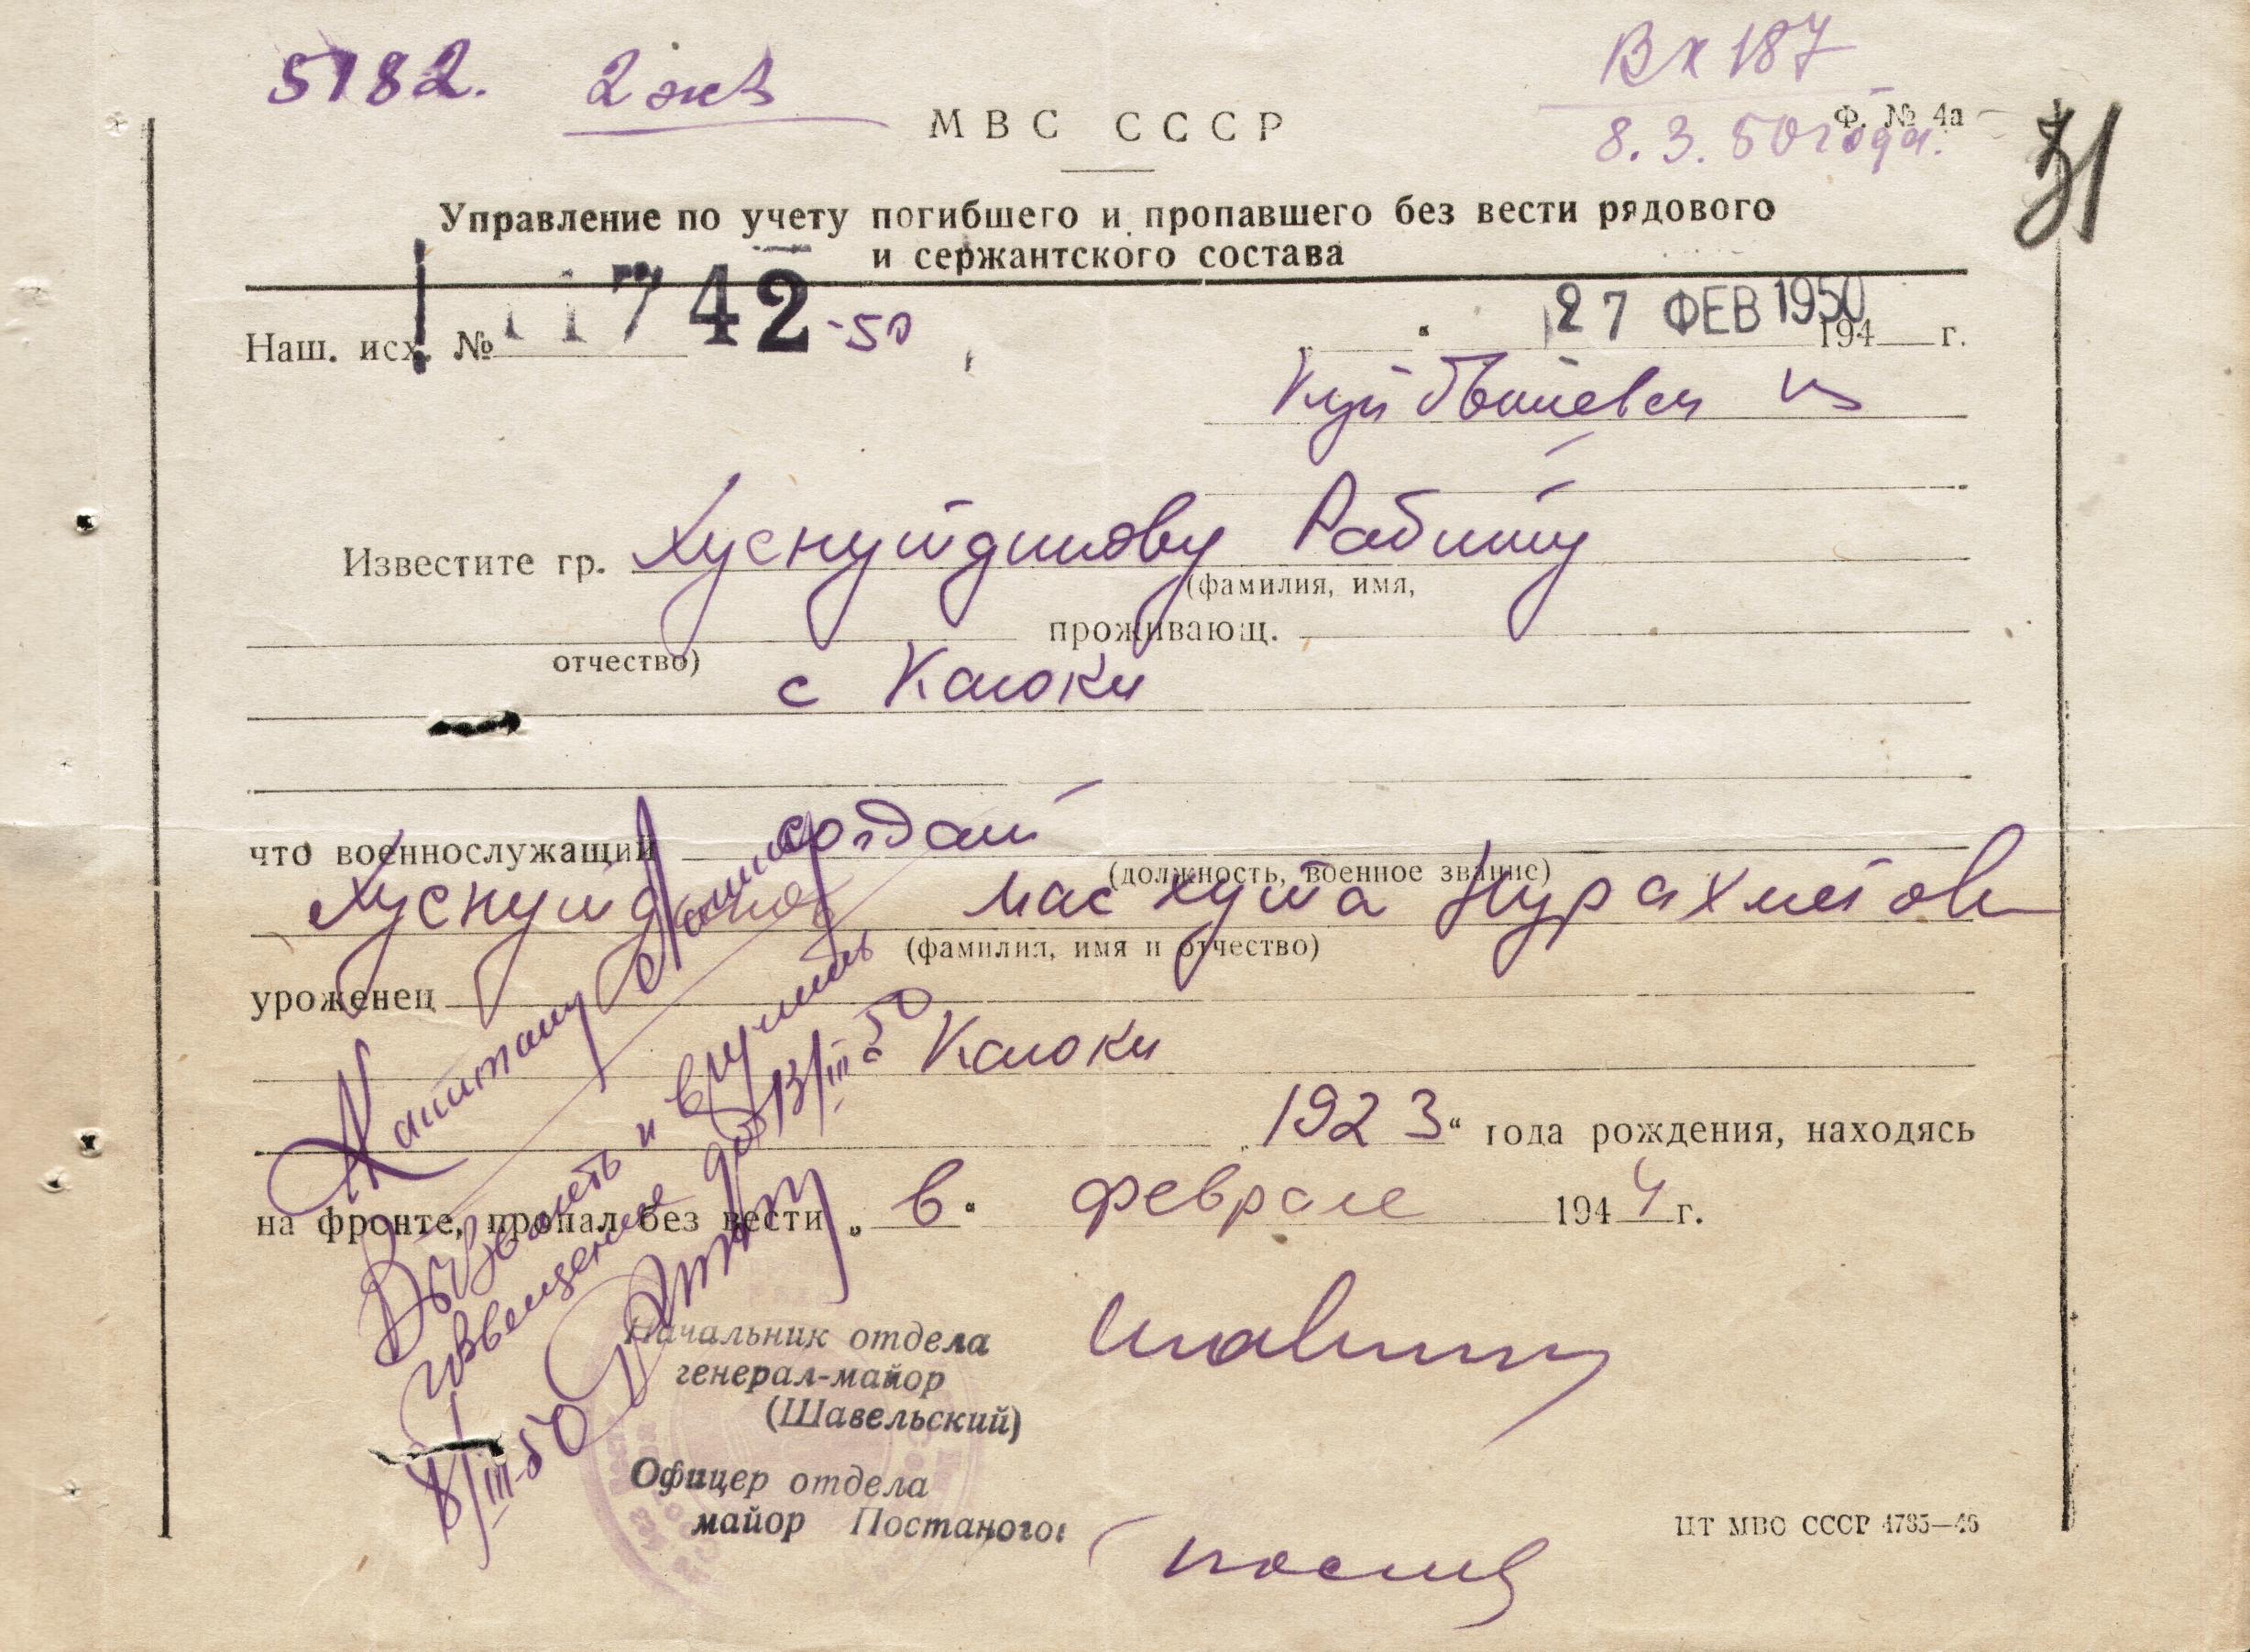 5182. 2 экз
Вх 187
8.3.50 года.
МВС СССР
Ф. № 4а
31
Управление по учету погибшего и пропавшего без вести рядового
и сержантского состава
Наш. исх. № 11742-50
27 ФЕВ 1950 194 г.
Куйбышевск
Известите гр. Хуснутдинову Рабигу
(фамилия, имя,
проживающ.
отчество)
с Каюки
что военнослужащий солдат
(должность, военное звание)
Хуснутдинов Масхута Нурахметов
(фамилия, имя и отчество)
уроженец
с Каюки
„1923“ года рождения, находясь
на фронте, пропал без вести „в“ феврале 1944 г.
Капитану
Вызвать и вручить
извещение до 13/III 50
8/III-50
Начальник отдела
генерал-майор
(Шавельский)
Офицер отдела
майор Постаногов
ЦТ МВС СССР 4785—46